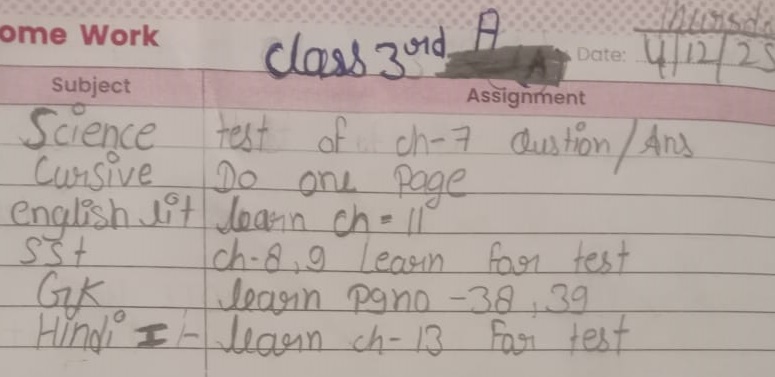 Thursda
ome Work class 3rd A Date: 4/12/25
Subject Assignment
Science test of ch-7 Qustion/Ans
Cursive Do one Page
english lit learn ch = 11
SSt ch-8,9 Learn For test
GK learn pgno -38, 39
Hindi I :- learn ch- 13 For test